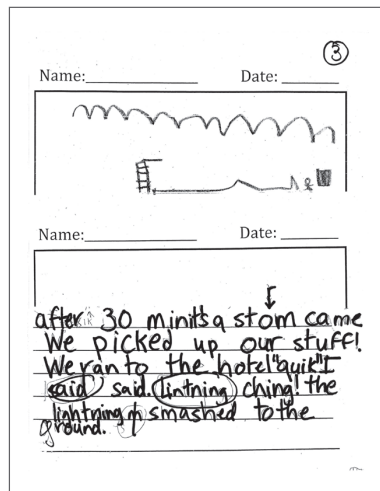 3
Name:____________ Date: ________
Name:____________ Date: ________
r
after 30 minits a stom came
We picked up our stuff!
We ran to the hotel "quik" I
said said. lintning ching! the
lightning smashed to the
ground.